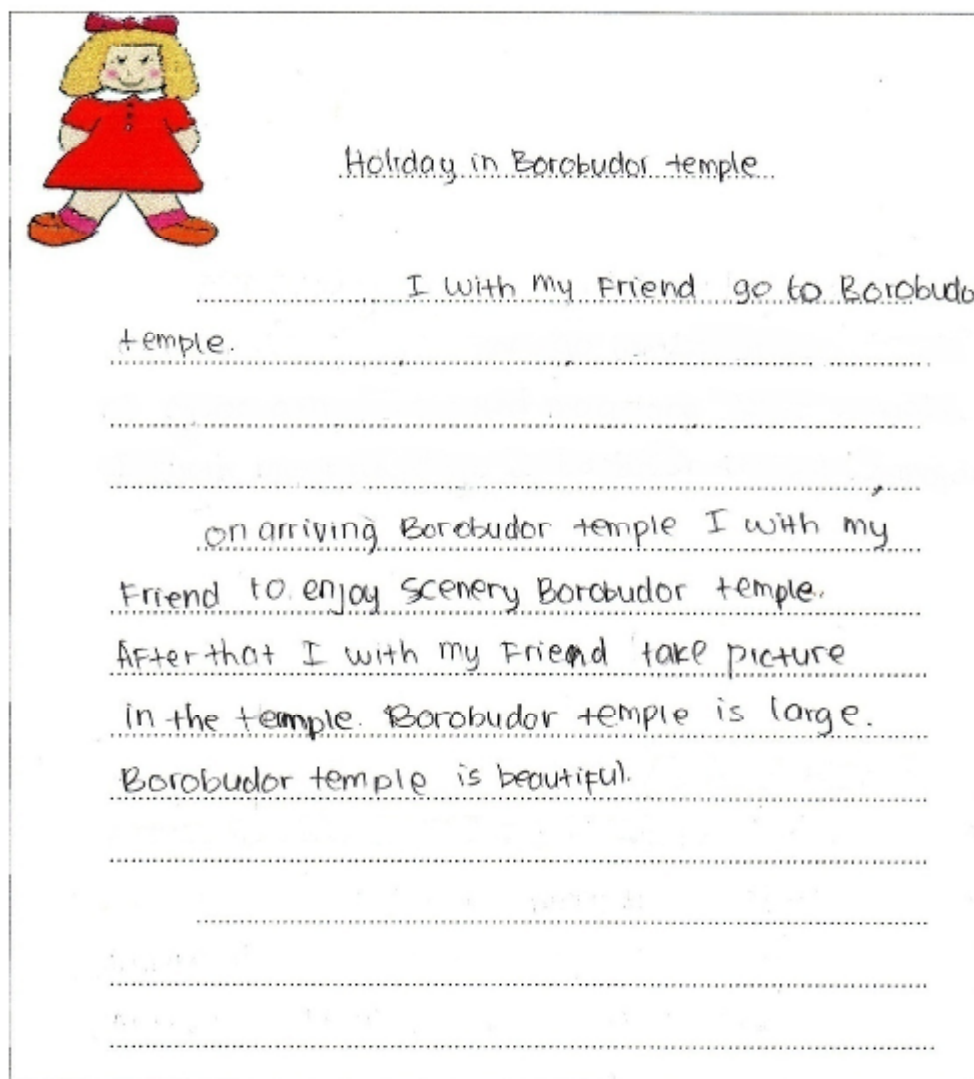 Holiday in Borobudor temple
I with my Friend go to Borobudo
temple.
on arriving Borobudor temple I with my
Friend to enjoy scenery Borobudor temple.
After that I with my Friend take picture
in the temple. Borobudor temple is large.
Borobudor temple is beautiful.